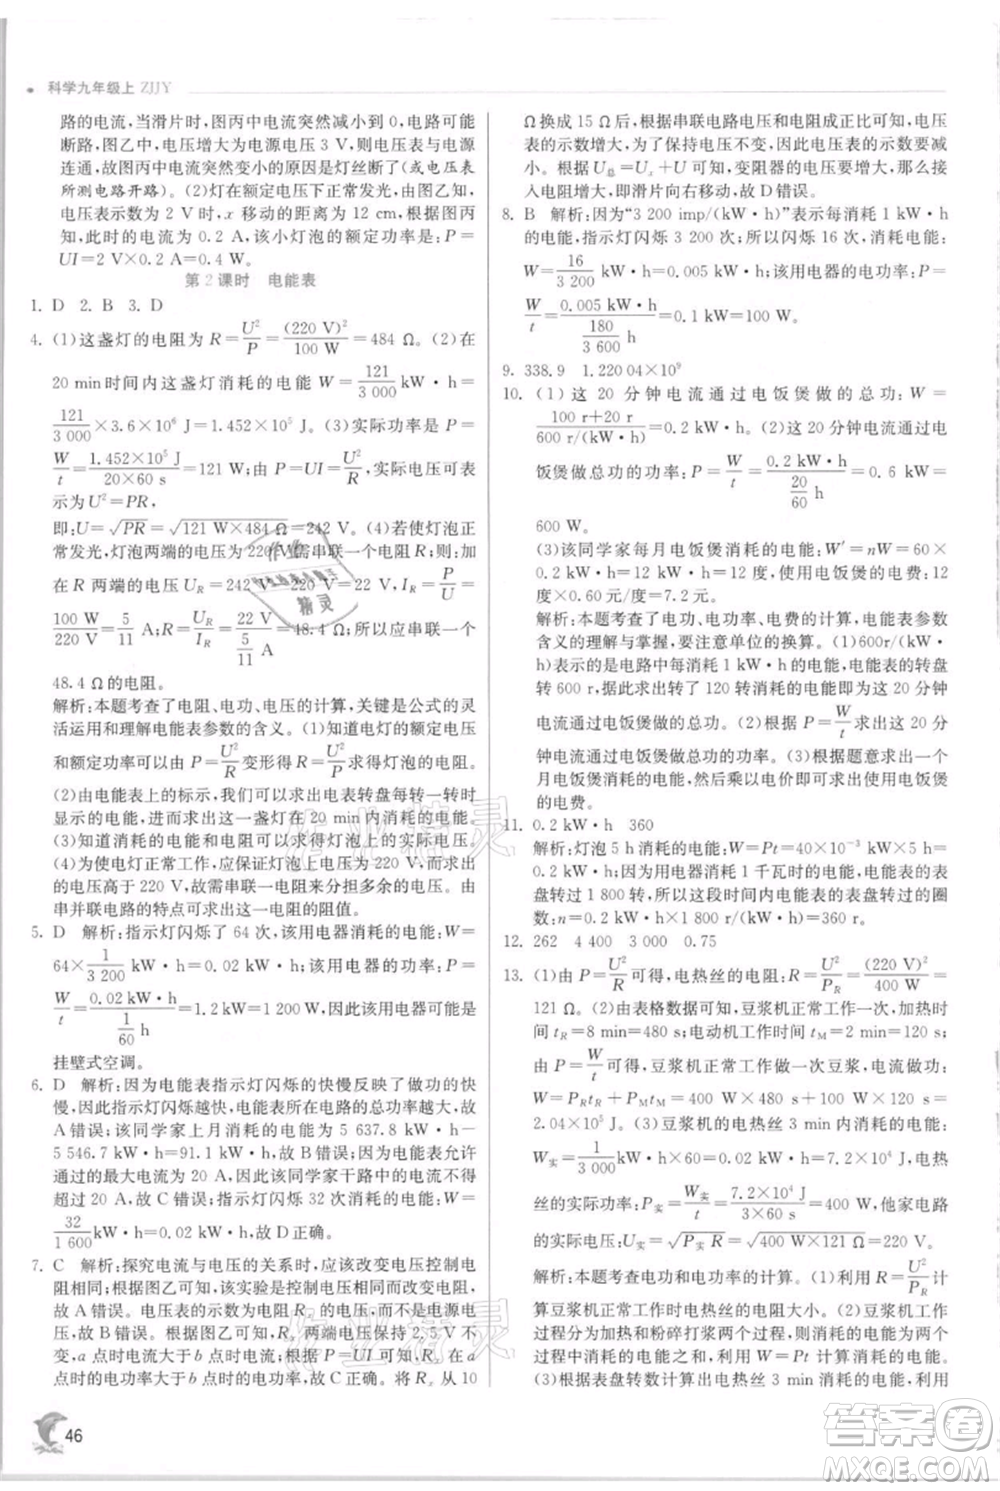 科学九年级上 ZJJY
路的电流,当滑片时,图丙中电流突然减小到 0,电路可能
断路,图丁中电压增大为电源电压 3 V,则电压表与电源
连通,故图丙中电流突然变小的原因是灯丝断了(或电压表
所测电路开路)。(2)灯在额定电压下正常发光,由图乙知,
电压表示数为 2 V 时,x 移动的距离为 12 cm,根据图丙
知,此时的电流为 0.2 A,该小灯泡的额定功率为:P=
UI=2 V×0.2 A=0.4 W。
第 2 课时 电能表
1. D 2. B 3. D
4. (1)这盏灯的电阻为 R=U²/P=(220 V)²/100 W=484 Ω (2)在
20 min时间内这盏灯消耗的电能为 W=121/3 000 kW·h=
121/3 000×3.6×10⁶ J=1.452×10⁵ J。(3)实际功率是 P=
W/t=1.452×10⁵ J/20×60 s=121 W;由 P=UI=U²/R,实际电压可表
示为U²=PR,
即:U=√PR=√121 W×484 Ω=242 V。(4)若使灯泡正
常发光,灯泡两端的电压为220 V,需串联一个电阻 R;加
在 R 两端的电压 U_R=242 V-220 V=22 V,I_R=P/U=
100 W/220 V=5/11 A;R=U_R/I_R=22 V/(5/11 A)=48.4 Ω;所以应串联一个
48.4 Ω的电阻。
解析:本题考查了电阻、电功、电压的计算,关键是公式的灵
活运用和理解电能表参数的含义。(1)知道电灯的额定电压
和额定功率,可以由 P=U²/R变形得 R=U²/P求得灯泡的电阻。
(2)由电能表上的标示,我们可以求出电表转盘每转一转时
显示的电能,进而求出这一盏灯在 20 min 内消耗的电能。
(3)知道消耗的电能和时间可以求得实际功率的大小。
(4)为使电灯正常工作,应保证灯泡上电压为 220 V,而电源
电压高于 220 V,故需串联一个电阻来分担多余的电压。由
串并联电路的特点可求出这一电阻的阻值。
5. D 解析:指示灯闪烁了 64 次,该用电器消耗的电能:W=
64×1/3 200 kW·h=0.02 kW·h;该用电器的电功率:P=
W/t=0.02 kW·h/(1/60 h)=1.2 kW=1 200 W,因此该用电器可能是
挂壁式空调。
6. D 解析:因为电能表指示灯闪烁的快慢反映了做功的快
慢,指示灯闪烁越快,电能表所在电路的总功率越大,故
A 错误;该同学家上月消耗的电能为 5 637.8 kW·h-
5 546.7 kW·h=91.1 kW·h,故 B 错误;电能表允许
通过的最大电流为 20 A,因此该同学家干路中的电流不能
超过 20 A,故 C 错误;指示灯闪烁 32 次消耗的电能 W=
32/1 600 kW·h=0.02 kW·h,故 D 正确。
7. C 解析:探究电流与电压的关系时,应该改变电压控制
电阻相同;根据图乙可知,该实验是控制电压而改变电阻,
故 A 错误。电压表的示数为电阻 Rₓ 的电压,而不是电源电
压,故 B 错误。根据图乙可知,Rₓ 两端电压保持 2.5 V不
变,a 点时电流大于 b 点时电流,根据 P=UI 可知,R 在 a
点时的电功率大于 b 点时的电功率,故 C 正确。将 Rₓ 从 10
Ω换成 15 Ω后,根据串联电路电压和电阻成正比可知,电压
表的示数增大;为了保持电压不变,因此电压表的示数要减
小。根据 U总=Uₓ+U 可知,变阻器的电压要增大,那么接
入电阻增大,即滑片向右移动,故 D 错误。
8. B 解析:因为“3 200 imp/(kW·h)”表示每消耗 1 kW·h
的电能,指示灯闪烁 3 200 次;所以闪烁 16 次,消耗电能:
W=16/3 200 kW·h=0.005 kW·h;该用电器的电功率:P=
W/t=0.005 kW·h/(180/3 600 h)=0.1 kW=100 W。
9. 338.9 1.220 04×10⁹
10. (1)这 20 分钟电流通过电饭煲做的总功:W=
100 r+20 r/600 r/(kW·h)=0.2 kW·h。(2)这20分钟电流通过电
饭煲做总功的功率:P=W/t=0.2 kW·h/(20/60 h)=0.6 kW=
600 W。
(3)该同学家每月电饭煲消耗的电能:W′=nW=60×
0.2 kW·h=12 kW·h,使用电饭煲消耗的电费:12
度×0.60 元/度=7.2元。
解析:本题考查了电功、电功率、电费的计算,电能表参数
含义的理解与掌握,要注意单位的换算。(1)600r/(kW·
h)表示的是电路中每消耗 1 kW·h 的电能,电能表的转盘
转过 600r,据此求出转了 120 转消耗的电能即为这 20 分钟
电流通过电饭煲做的总功。(2)根据 P=W/t求出这 20 分
钟电流通过电饭煲做总功的功率。(3)根据题意求出一个
月电饭煲消耗的电能,然后乘以电价即可求出使用电饭煲
的电费。
11. 0.2 kW·h 360
解析:灯泡 5 h消耗的电能:W=Pt=40×10⁻³ kW×
5 h=0.2 kW·h。因为该用电器消耗 1 千瓦时的电能,电能表的表
盘转过 1 800 转,所以这段时间内电能表的表盘转过的圈
数:n=0.2 kW·h×1 800 r/(kW·h)=360 r。
12. 262 4 400 3 000 0.75
13. (1)由 P=U²/R可得,电热丝的电阻:R=U²/P_R=(220 V)²/400 W=
121 Ω。(2)由表格数据可知,豆浆机正常工作一次,加热时
间 t_R=8 min=480 s;电动机工作时间 t_M=2 min=120 s,
由 P=W/t可得,豆浆机正常工作一次,电流做功:
W=P_R t_R+P_M t_M=400 W×480 s+100 W×120 s=
2.04×10⁵ J。(3)豆浆机电热丝 3 min 内实际消耗的电能:
W实=1/3 000×60 kW·h=0.02 kW·h=7.2×10⁴ J,电热
丝的实际功率:P实=W实/t=7.2×10⁴ J/3×60 s=400 W,他家电路
的实际电压:U实=√P实R=√400 W×121 Ω=220 V。
解析:本题考查电功和电功率的计算。(1)利用 R=U²/P_R计
算豆浆机正常工作时电热丝的电阻大小。(2)豆浆机正常
工作分为加热和粉碎打浆两个过程,分别计算两个过程消
耗的电能之和,可以利用 W=Pt 计算消耗的电能。
(3)根据表盘转数计算电热丝 3 min 消耗的电能,利用
46
作业精灵
答案圈
MXQE.COM